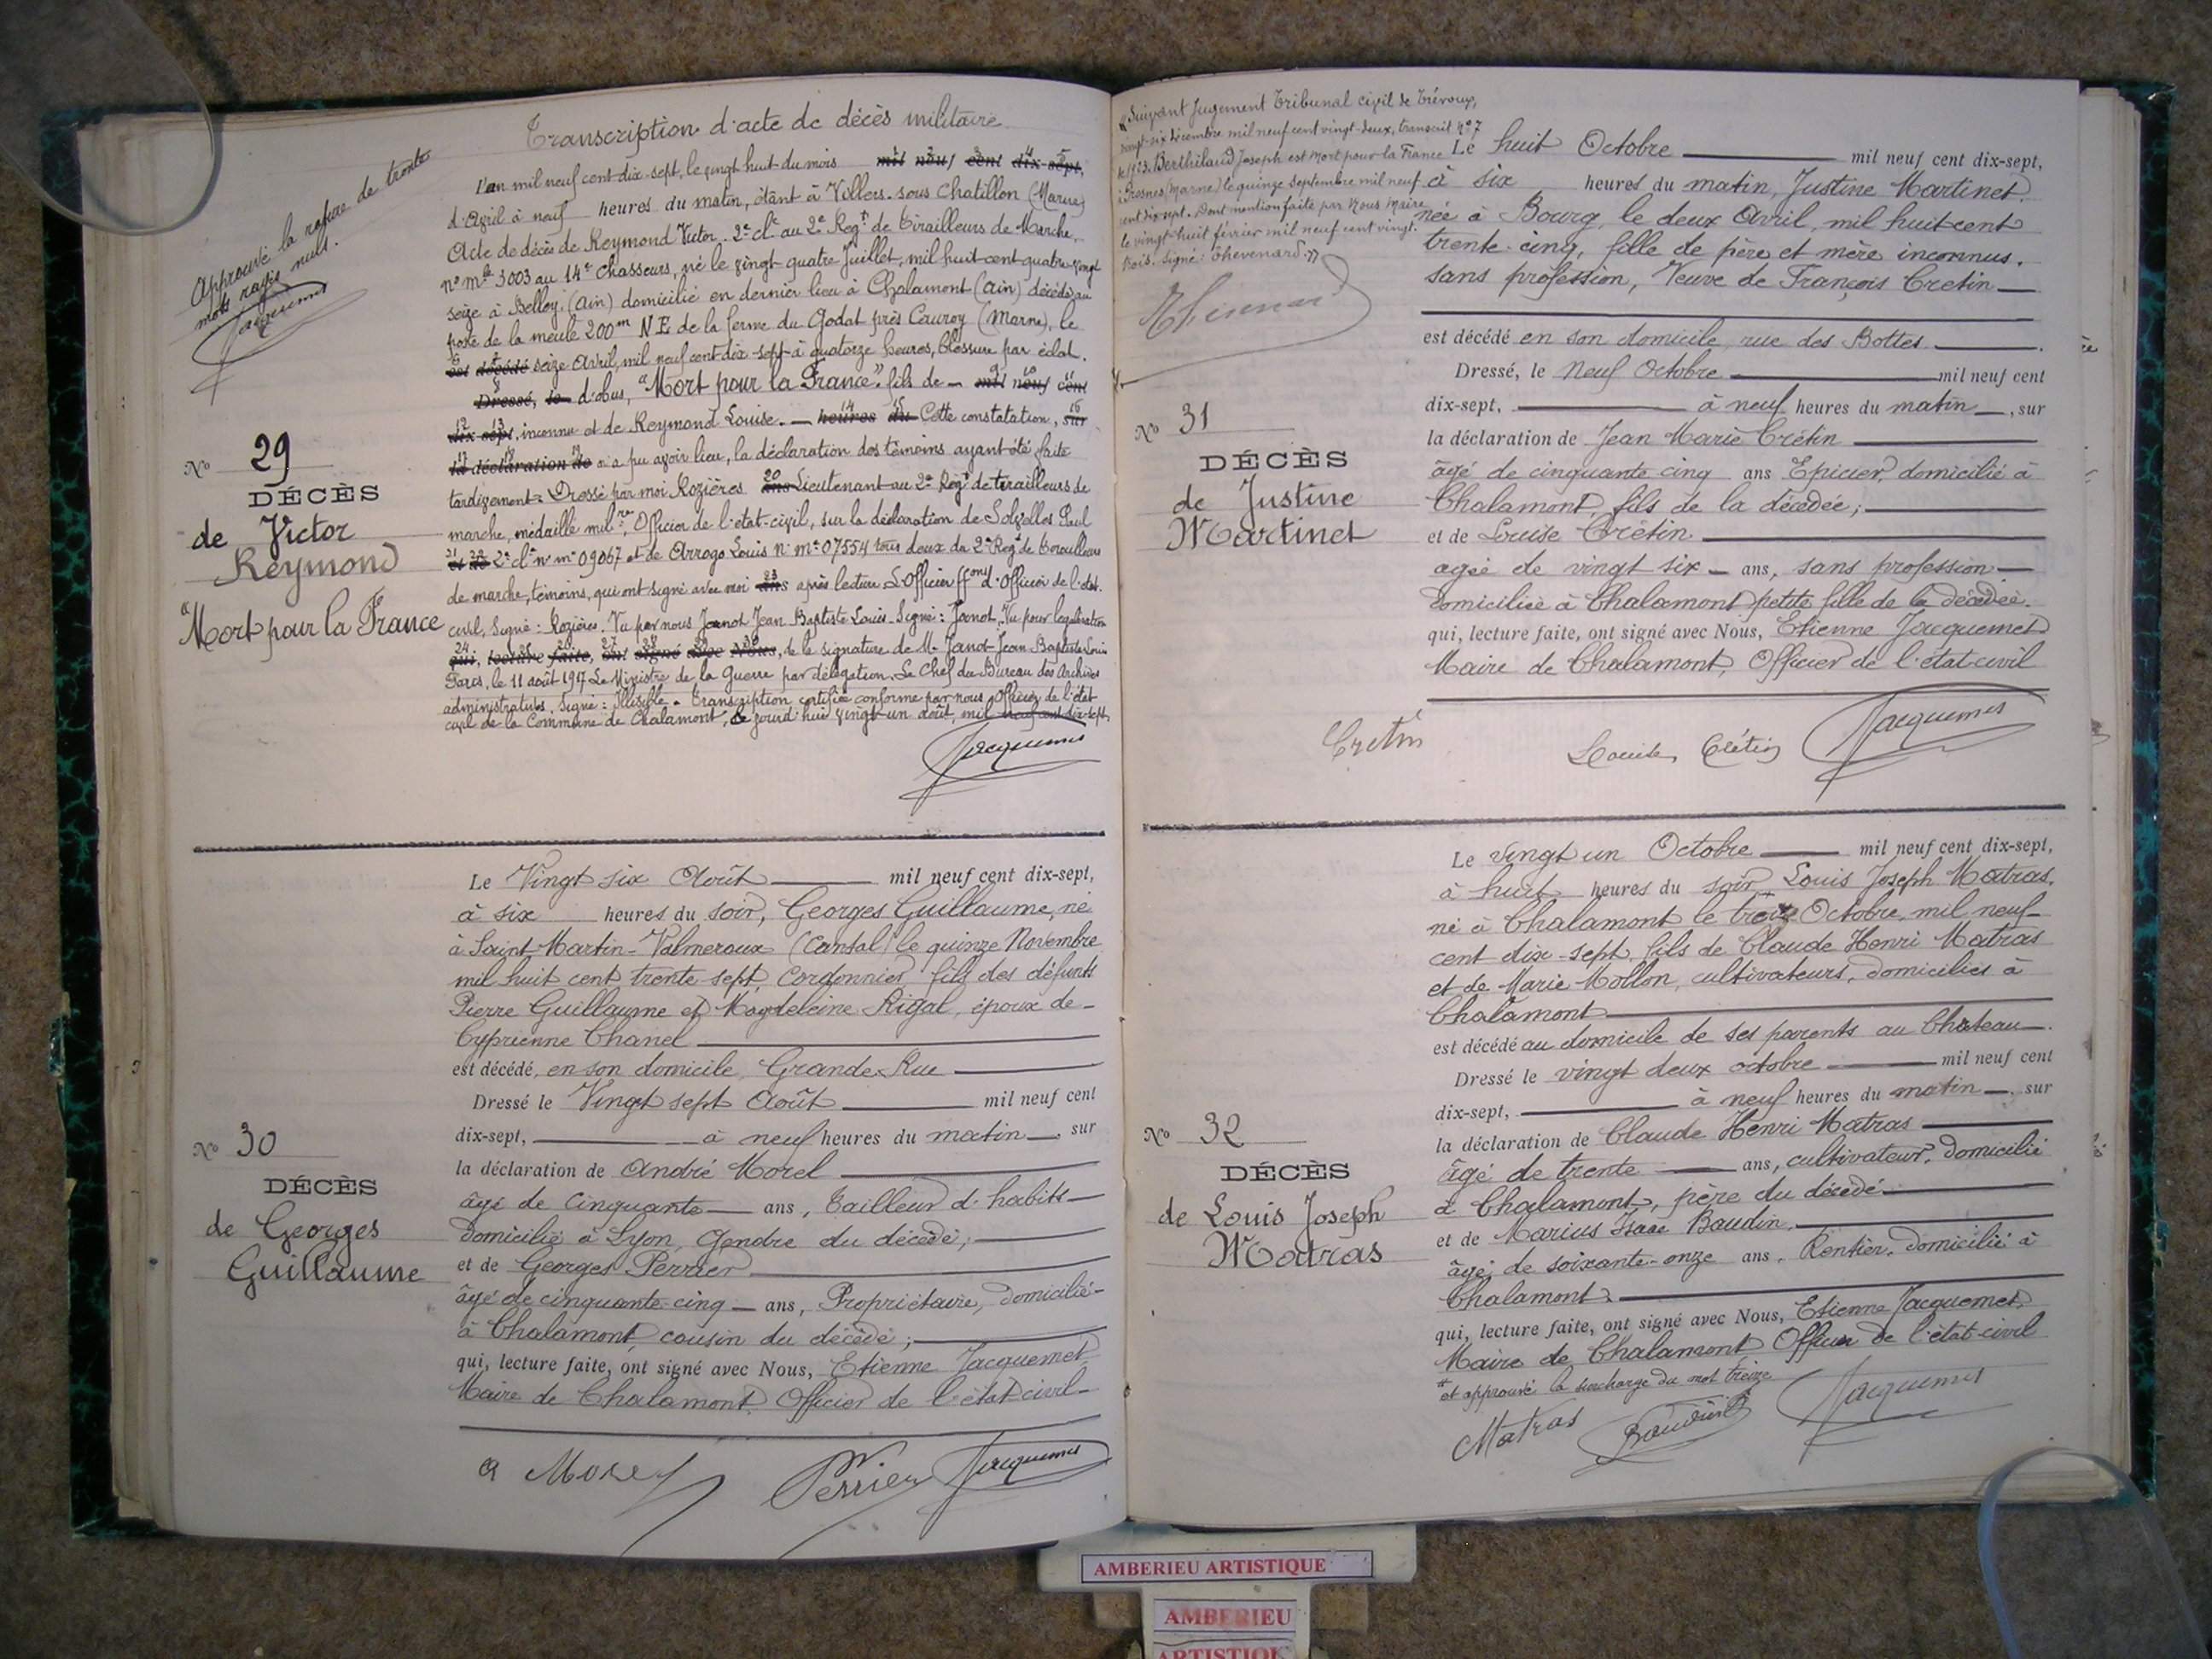 Transcription d'acte de décès militaire
Approuvé la rature de trente
mots rayés nuls.
Jacquemet
L'an mil neuf cent dix-sept, le vingt huit du mois mil neuf cent dix-sept,
d'Avril à neuf heures du matin, étant à Villers-sous Chatillon (Marne)
Acte de décès de Reymond Victor 2e cl. au 2e Regt de Tirailleurs de Marche,
no mle 3003 au 14e Chasseurs, né le vingt-quatre Juillet, mil huit-cent quatre-vingt
seize à Belley, (Ain) domicilié en dernier lieu à Chalamont (Ain) décédé au
poste de la meule 200m N.E. de la ferme du Godat près Cauroy (Marne), le
est décédé seize Avril, mil neuf cent dix-sept à quatorze heures, blessure par éclat.
Dressé, le d'obus, "Mort pour la France". fils de mil neuf cent
dix-sept, inconnu et de Reymond Louise. heures du Cette constatation, sur
la déclaration de n'a pu avoir lieu, la déclaration des témoins ayant été faite
tardivement. Dressé par moi Rozières ans Lieutenant au 2e Regt de tirailleurs de
marche, médaillé milre, Officier de l'état-civil, sur la déclaration de Paul
et de 2e cl. no me 09067 et de Arrogo Louis no me 07554 tous deux du 2e Regt de tirailleurs
de marche, témoins, qui ont signé avec moi ans après lecture. L'Officier d'Officier de l'état.
civil, Signé: Rozières. Vu par nous Jeanot Jean Baptiste Louis. Signé: Janot. Vu pour legalisation
qui, lecture faite, ont signé avec Nous, de la signature de M. Janot Jean Baptiste Louis
Paris, le 11 août 1917 Le Ministre de la Guerre par délégation, Le Chef du Bureau des Archives
administratives. Signé: Illisible. Transcription certifiée conforme par nous Officier de l'état
civil de la Commune de Chalamont, le jourd'hui vingt-un août, mil neuf cent dix-sept
Jacquemet
No 29
DÉCÈS
de Victor
Reymond
"Mort pour la France
Le Vingt six Août mil neuf cent dix-sept,
à six heures du soir, Georges Guillaume, né
à Saint-Martin-Valmeroux (Cantal) le quinze Novembre
mil huit cent trente sept, Cordonnier, fils des défunts
Pierre Guillaume et Magdeleine Rigal, époux de
Cyprienne Chanel
est décédé, en son domicile, Grande Rue
Dressé le Vingt sept Août mil neuf cent
dix-sept, à neuf heures du matin, sur
la déclaration de André Morel
âgé de Cinquante ans, Tailleur d'habits
domicilié à Lyon, Gendre du décédé;
et de Georges Perrier
âgé de cinquante-cinq ans, Propriétaire, domicilié
à Chalamont, cousin du décédé;
qui, lecture faite, ont signé avec Nous, Etienne Jacquemet,
Maire de Chalamont, Officier de l'état-civil
No 30
DÉCÈS
de Georges
Guillaume
A Morel Perrier Jacquemet
Suivant Jugement Tribunal civil de Trévoux,
vingt-six décembre mil neuf cent vingt-deux, transcrit No 7
de 1923. Berthiland Joseph est Mort pour la France
Presnes (Marne) le quinze septembre mil neuf
cent dix-sept. Dont mention faite par Nous Maire
le vingt-huit février mil neuf cent vingt-
trois. Signé: Thevenard."
Thevenard
Le huit Octobre mil neuf cent dix-sept,
à six heures du matin, Justine Martinet,
née à Bourg, le deux Avril, mil huit cent
trente-cinq, fille de père et mère inconnus,
sans profession, Veuve de François Cretin
est décédé en son domicile, rue des Bottes.
Dressé, le Neuf Octobre mil neuf cent
dix-sept, à neuf heures du matin, sur
la déclaration de Jean Marie Crétin
âgé de cinquante cinq ans Epicier, domicilié à
Chalamont, fils de la décédée;
et de Louise Crétin
agée de vingt six ans, sans profession
domiciliée à Chalamont, petite fille de la décédée.
qui, lecture faite, ont signé avec Nous, Etienne Jacquemet
Maire de Chalamont, Officier de l'état-civil
Cretin Louise Crétin Jacquemet
No 31
DÉCÈS
de Justine
Martinet
Le vingt un Octobre mil neuf cent dix-sept,
à huit heures du soir, Louis Joseph Matras,
né à Chalamont le treize Octobre, mil neuf
cent dix-sept, fils de Claude Henri Matras
et de Marie Mollon, cultivateurs, domiciliés à
Chalamont
est décédé au domicile de ses parents au Château.
Dressé le vingt deux octobre mil neuf cent
dix-sept, à neuf heures du matin, sur
la déclaration de Claude Henri Matras
âgé de trente ans, cultivateur, domicilié
à Chalamont, père du décédé
et de Marius Isaac Baudin,
âgé de soixante-onze ans, Rentier, domicilié à
Chalamont
qui, lecture faite, ont signé avec Nous, Etienne Jacquemet,
Maire de Chalamont Officier de l'état-civil
* et approuvé la surcharge du mot treize
Matras Baudin Jacquemet
No 32
DÉCÈS
de Louis Joseph
Matras
AMBERIEU ARTISTIQUE
AMBERIEU
ARTISTIQUE